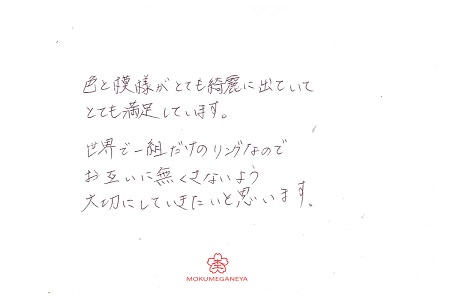 色と模様がとても綺麗に出ていて
とても満足しています。
世界で一組だけのリングなので
お互いに無くさないよう
大切にしていきたいと思います。
MOKUMEGANEYA